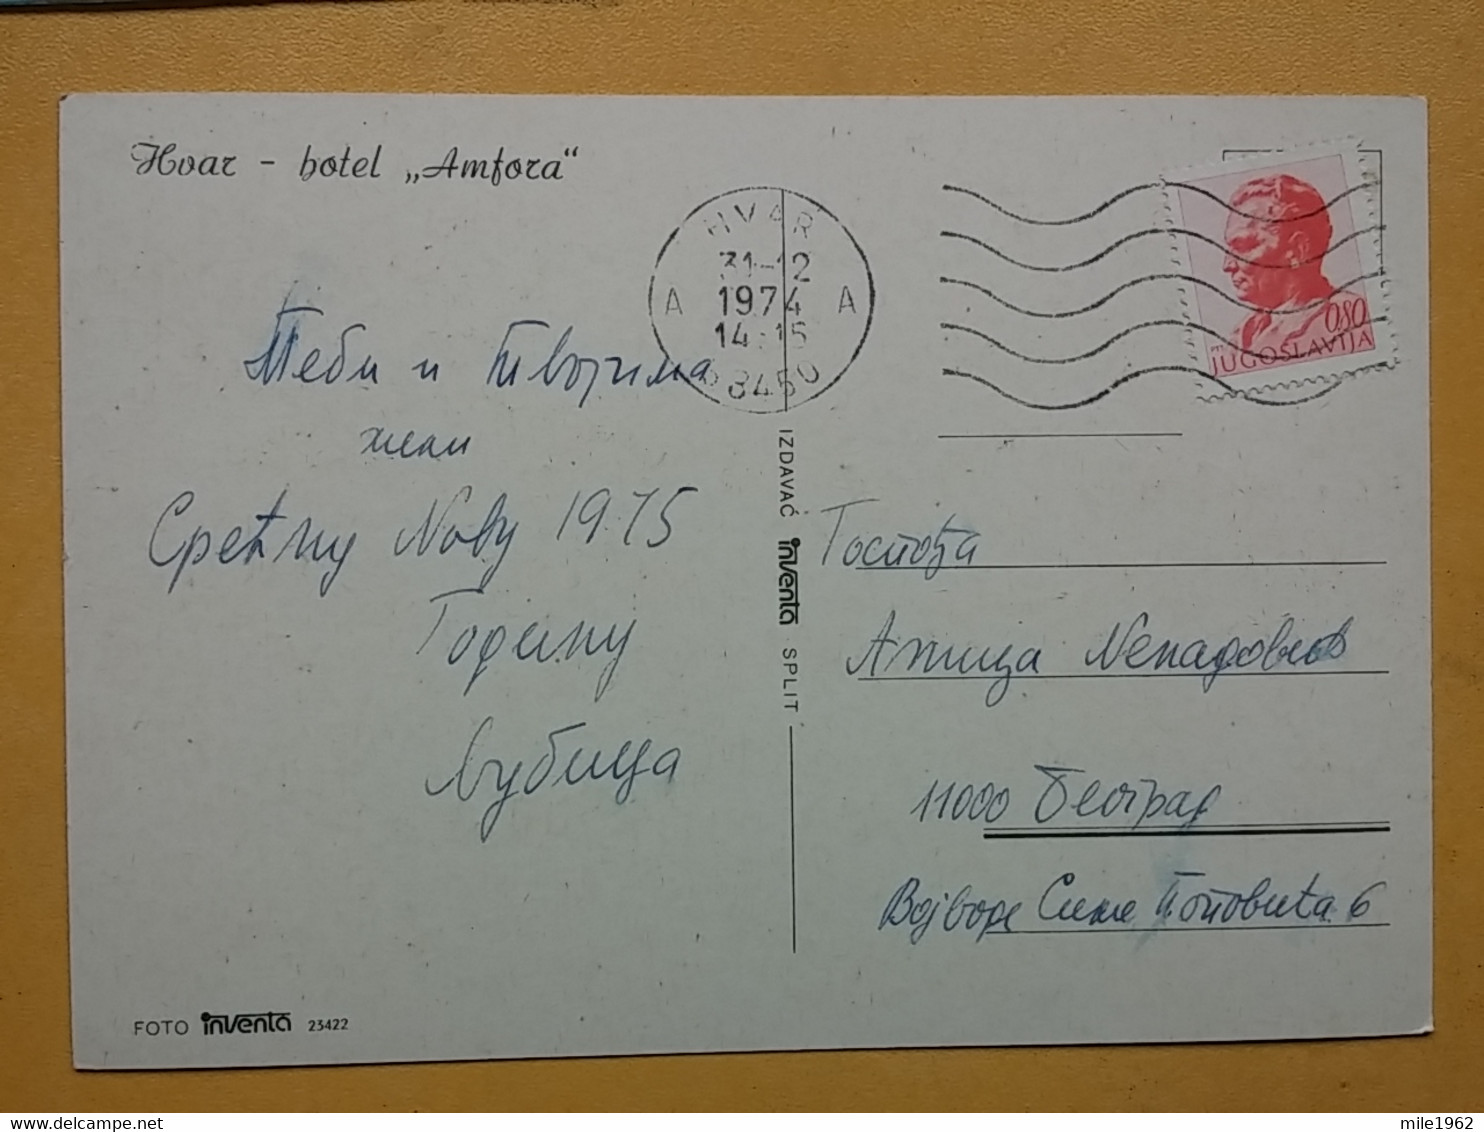 Hvar - hotel „Amfora“
HVAR
31-12
1974
14-15
A A
58450
0,80
JUGOSLAVIJA
Теби и твојима
жели
Срећну Нову 1975
Годину
Љубица
IZDAVAČ inventa SPLIT
Госпођа
Аница Ненадовић
11000 Београд
Војводе Симе Поповића 6
FOTO inventa 23422
mile1962